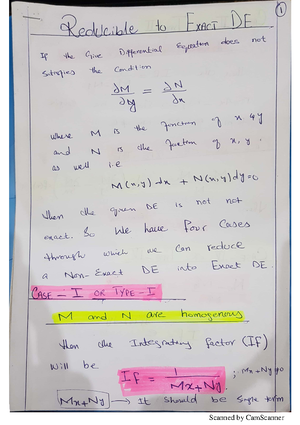 Reducible to Exact DE
1
If the Give Differential Equation does not
Satisfies the Condition
∂M/∂y = ∂N/∂x
where M is the function of x & y
and N is the function of x, y
as well i.e
M(x,y)dx + N(x,y)dy=0
then the given DE is not not
exact. So We have Four Cases
through which we can reduce
a Non-Exact DE into Exact DE.
CASE - I OR TYPE - I
M and N are homogenous
then the Integrating factor (IF)
will be
IF = 1/(Mx+Ny) ; Mx+Ny≠0
Mx+Ny → It should be single term
Scanned by CamScanner